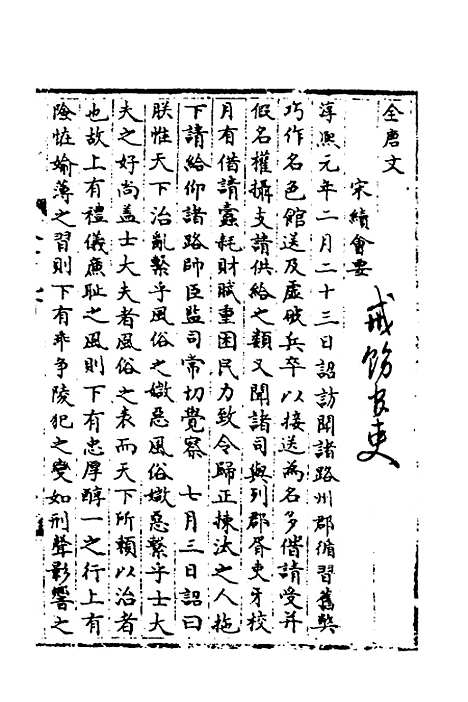 全唐文
宋續會要
戒飭官吏
淳熙元年二月二十三日詔訪聞諸路州郡循習舊獘
巧作名色館送及虛破兵卒以接送為名多偕請受并
假名權攝支請供給之類又聞諸司與列郡胥吏牙校
月有借請蠹耗財賦重困民力致令歸正揀汰之人拖
下請給仰諸路帥臣監司常切覺察　七月三日詔曰
朕惟天下治亂繫乎風俗之媺惡風俗媺惡繫乎士大
夫之好尚盖士大夫者風俗之表而天下所頼以治者
也故上有禮儀廉耻之風則下有忠厚醇一之行上有
險恠婾薄之習則下有乖争陵犯之變如刑聲影響之